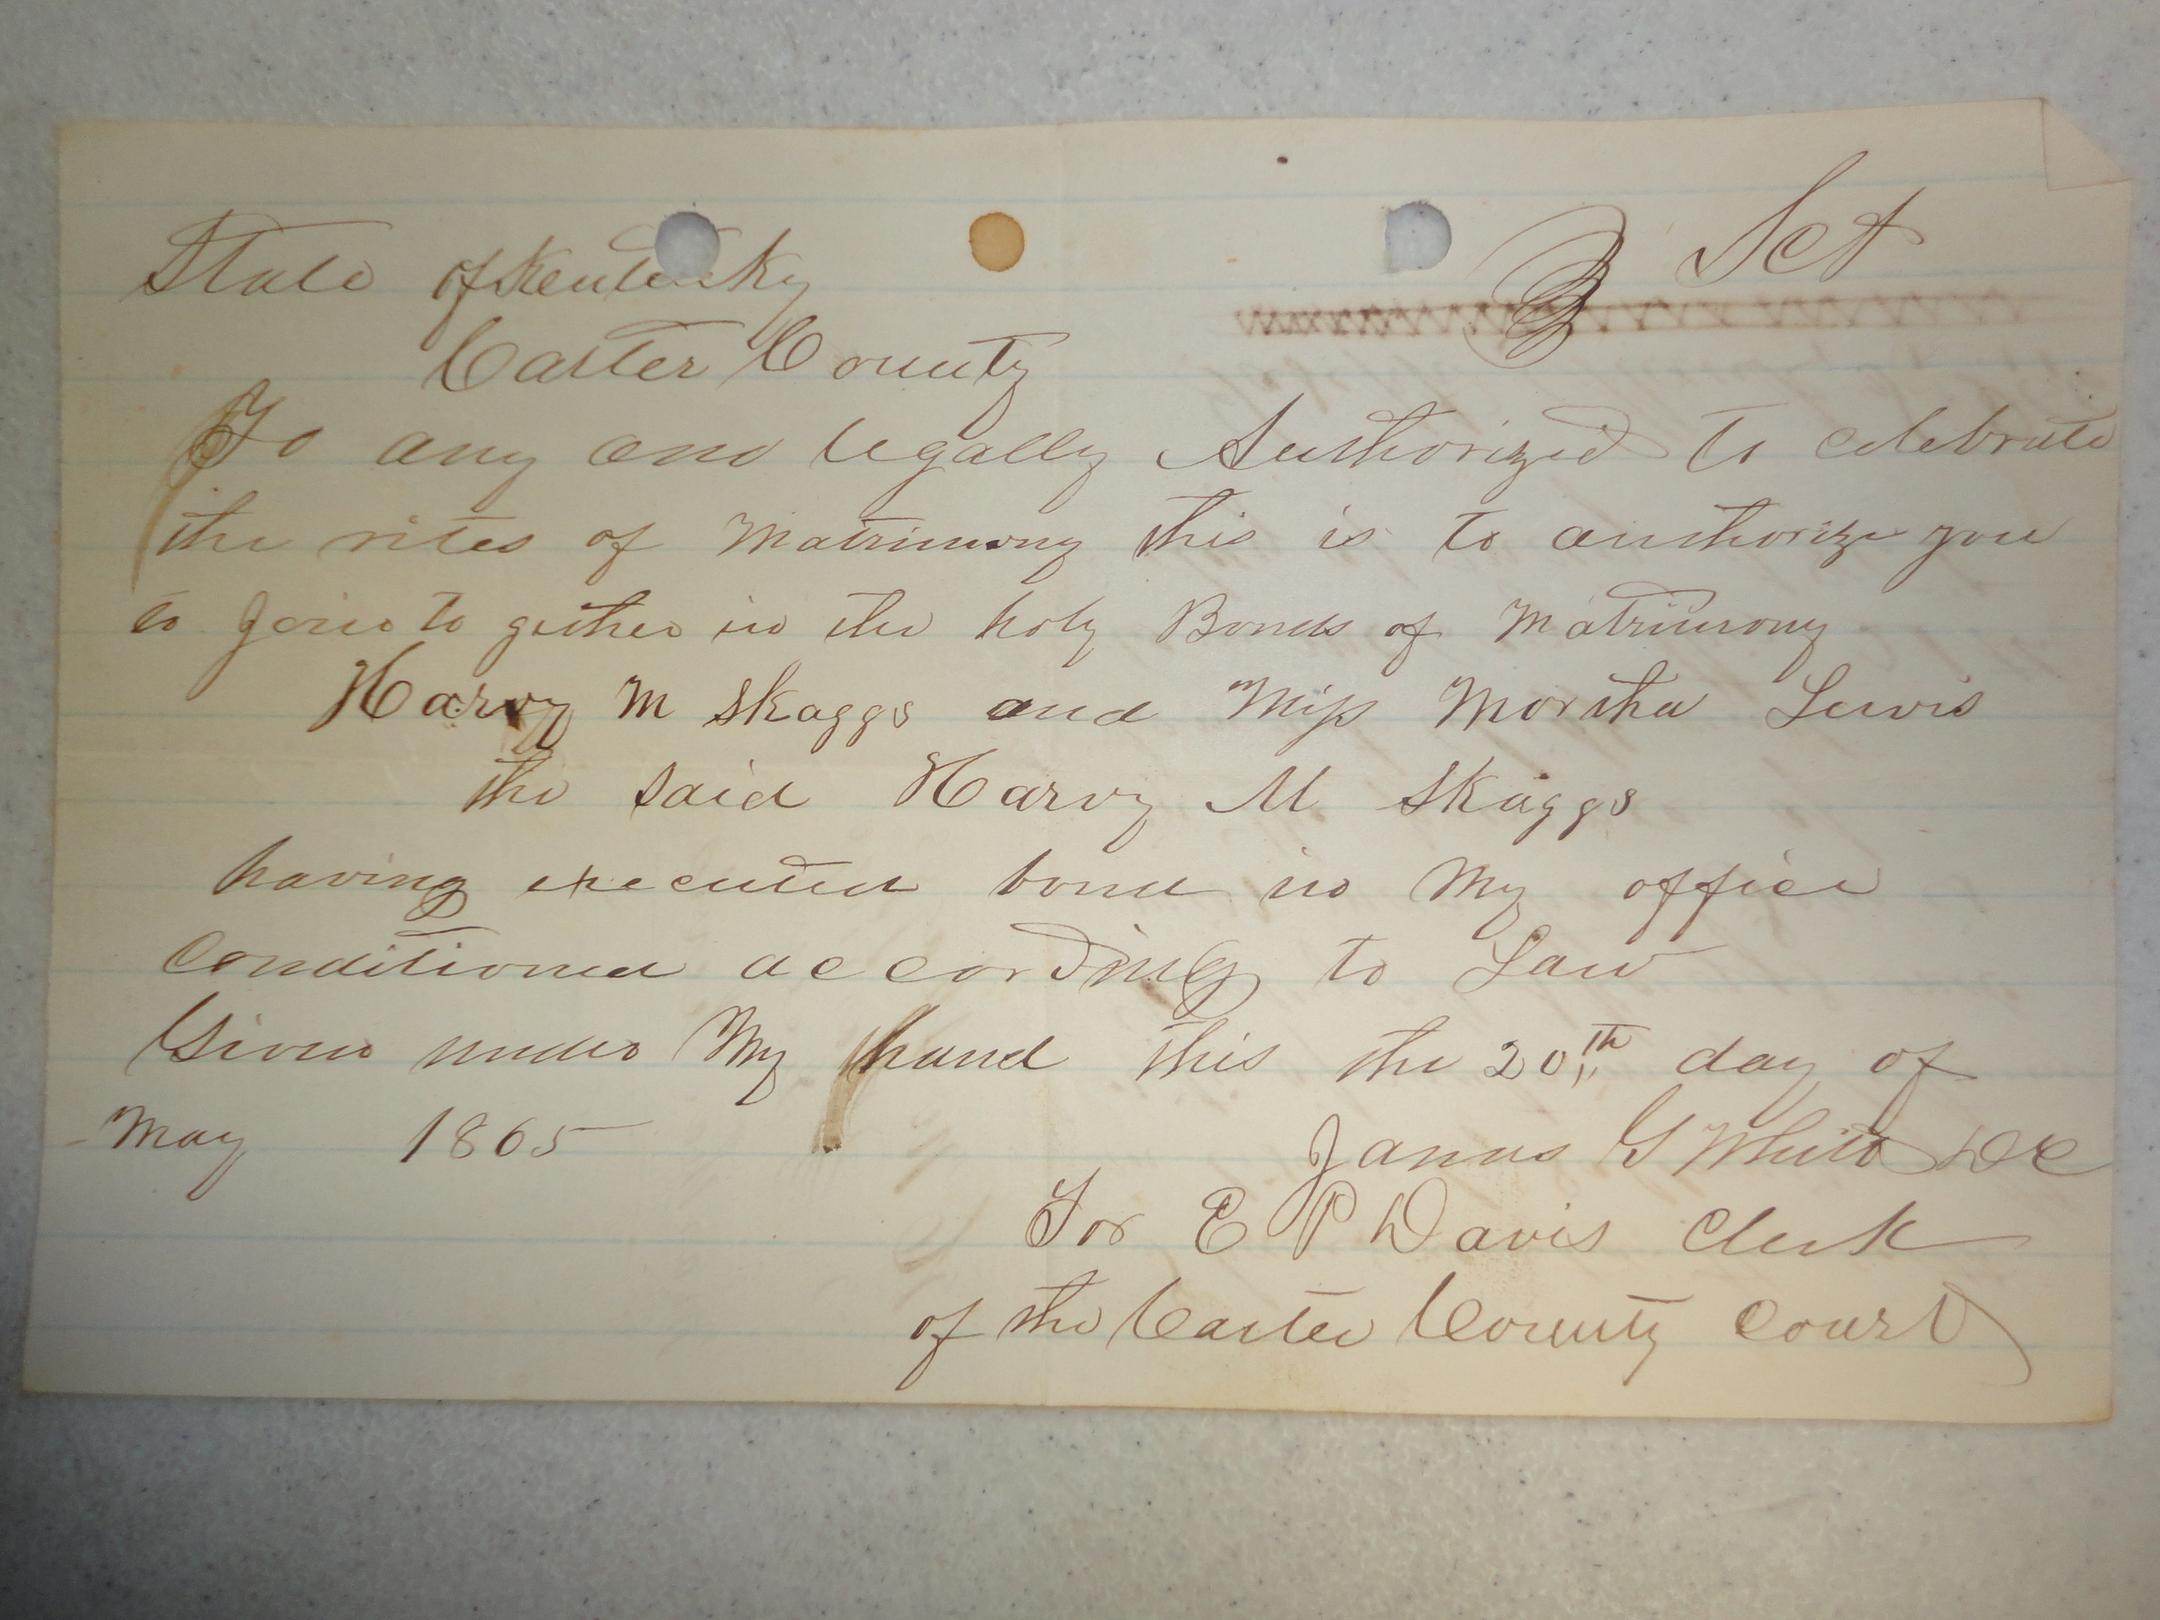 State of Kentucky } Sct
Carter County
To any one legally Authorized to celebrate
the rites of Matrimony this is to authorize you
to Join to gether in the holy Bonds of Matrimony
Harvy M Skaggs and Miss Martha Lewis
the said Harvy M Skaggs
having executed bond in My office
Conditioned according to Law
Given under My hand this the 20th day of
May 1865
James G Whitt DC
For E P Davis Clerk
of the Carter County Court